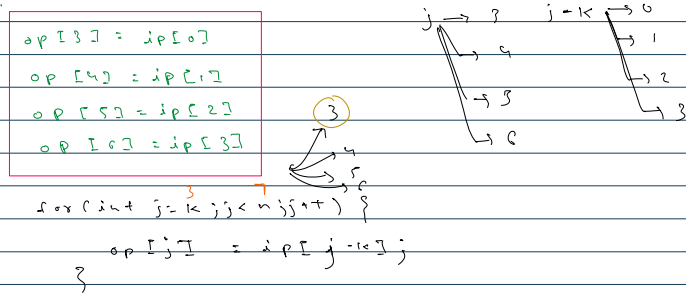 op[3] = ip[0]
op[4] = ip[1]
op[5] = ip[2]
op[6] = ip[3]
j → 3
4
5
6
j-k → 0
1
2
3
3
4
5
6
3 7
for(int j=k;j<n;j++) {
op[j] = ip[j-k];
}